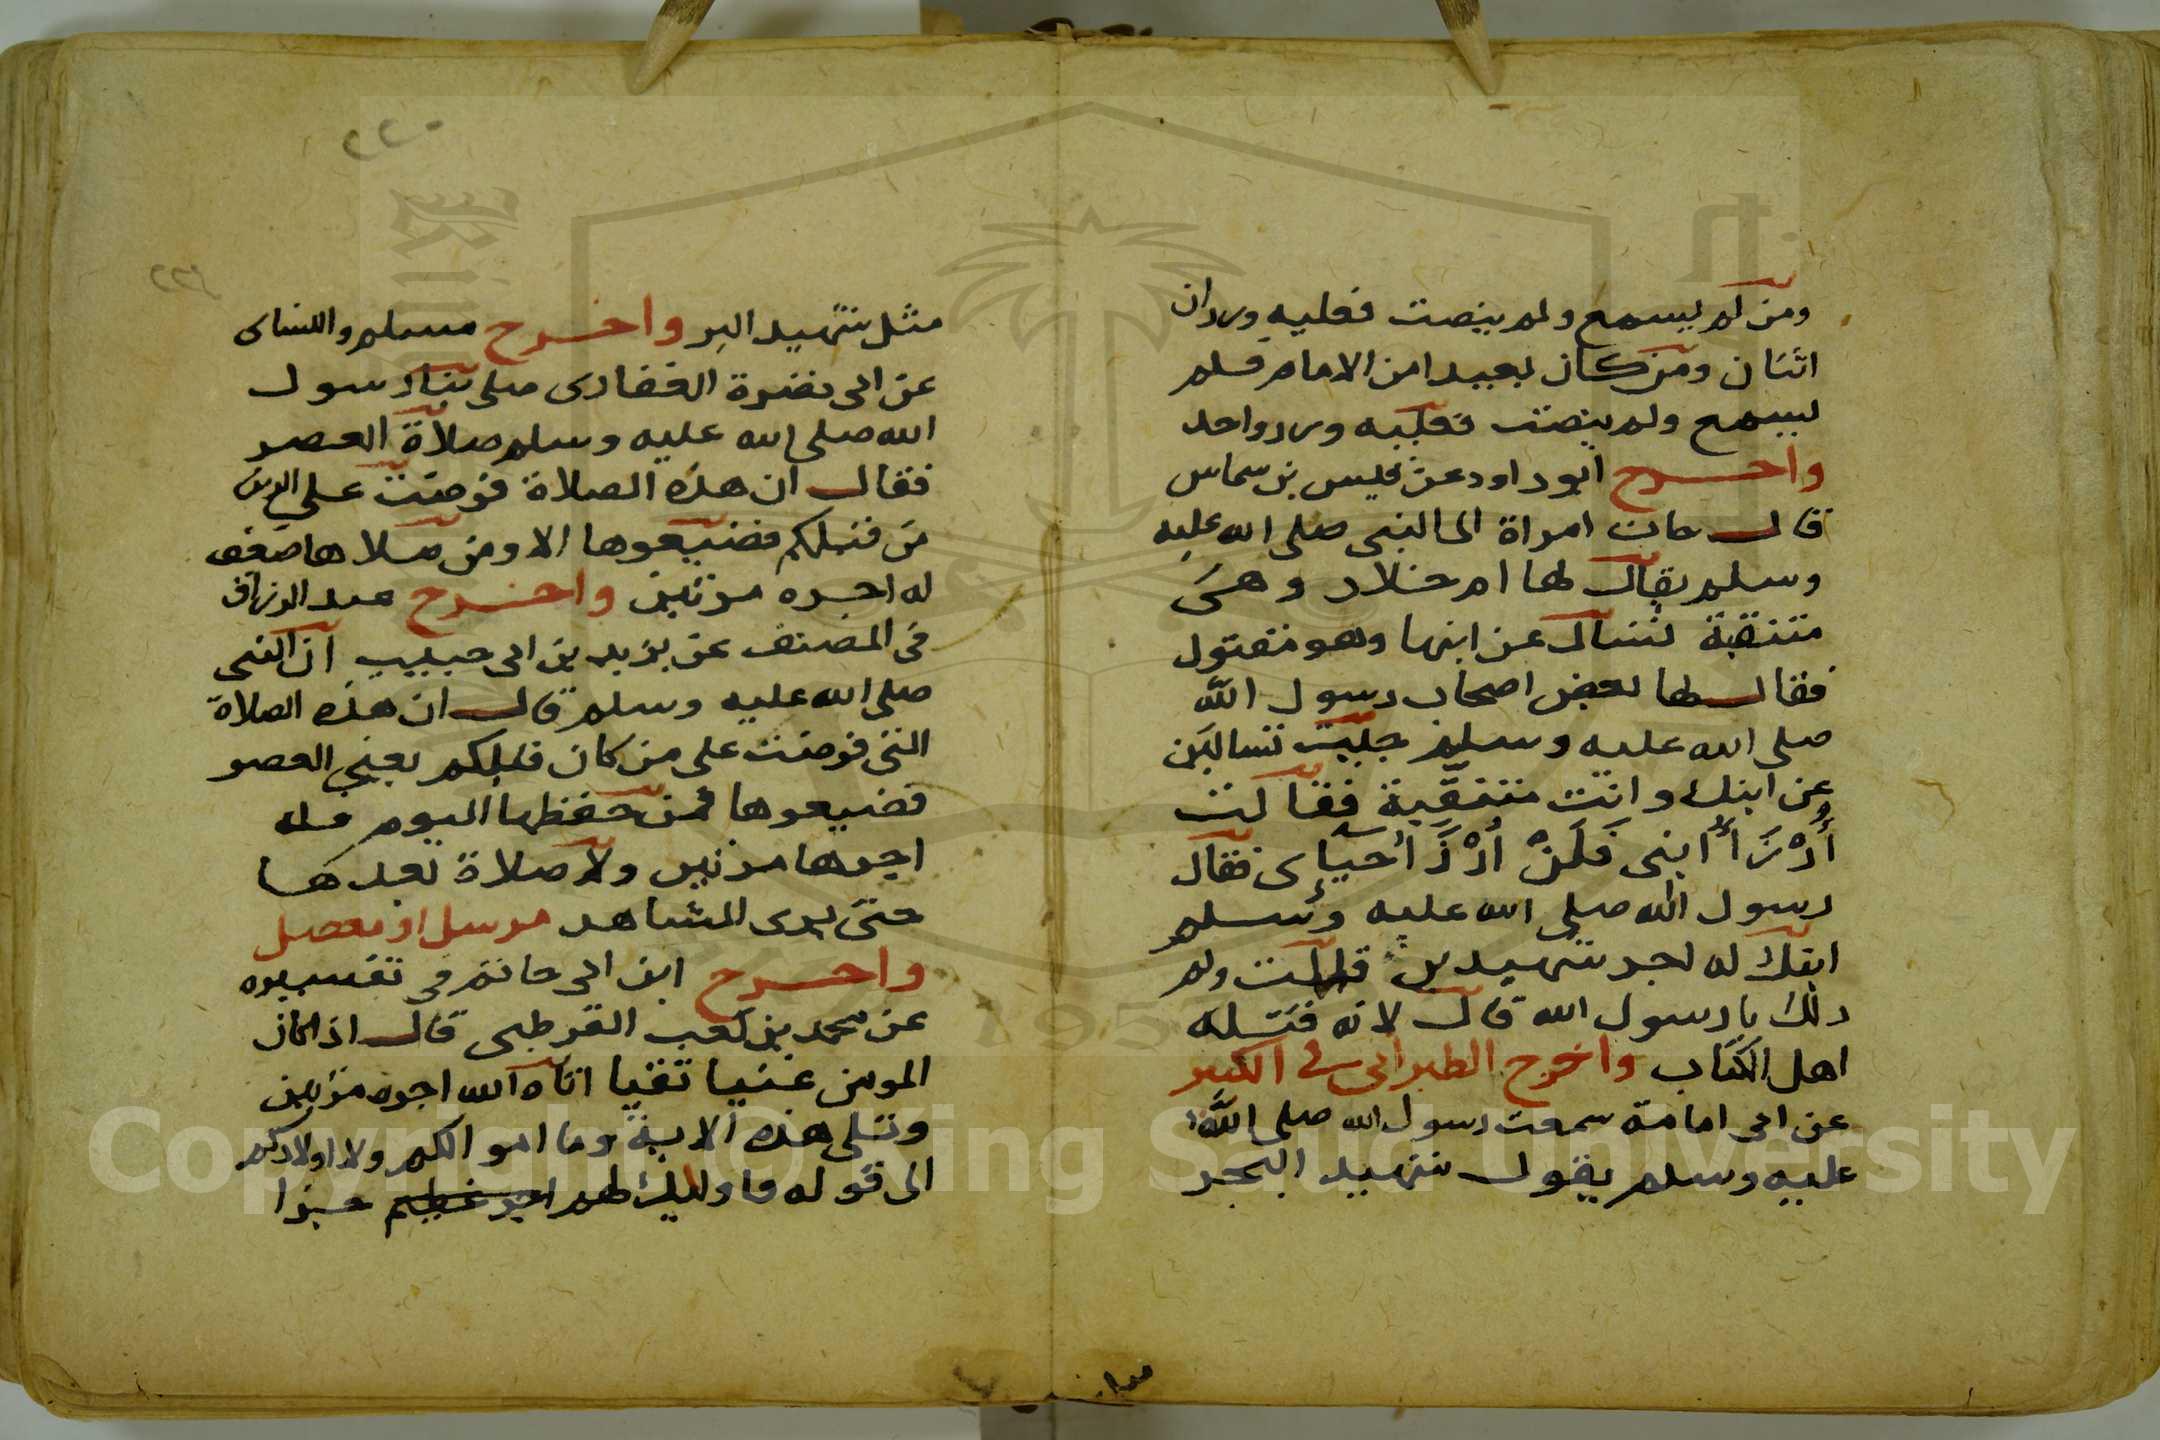 ومن لم يسمع ولم ينصت فعليه وزران
اثنان ومن كان بعيدا من الامام فلم
يسمع ولم ينصت فعليه وزر واحد
واخرج ابو داود عن قيس بن شماس
قال جات امراة الى النبي صلى الله عليه
وسلم يقال لها ام خلاد وهى
متنقبة تسال عن ابنها وهو مقتول
فقال لها بعض اصحاب رسول الله
صلى الله عليه وسلم جيت تسالين
عن ابنك وانت متنقبة فقالت
أُرْزَأ ابنى فَلَنْ أُرْزَأ حياى فقال
رسول الله صلى الله عليه وسلم
ابنك له اجر شهيدين قالت ولم
ذلك يا رسول الله قال لانه قتله
اهل الكتاب واخرج الطبرانى فى الكبير
عن ابى امامة سمعت رسول الله صلى الله
عليه وسلم يقول شهيد البحر
٢٢٠
٢٢٩
مثل شهيد البر واخرج مسلم والنساى
عن ابى نضرة الغفارى صلى بنا رسول
الله صلى الله عليه وسلم صلاة العصر
فقال ان هذه الصلاة فرضت على
من قبلكم فضيعوها الا ومن صلاها ضعف
له اجره مرتين واخرج عبد الرزاق
فى المصنف عن يزيد بن ابى حبيب ان النبى
صلى الله عليه وسلم قال ان هذه الصلاة
التى فرضت على من كان قبلكم يعنى العصر
فضيعوها فمن حفظها اليوم فله
اجرها مرتين ولا صلاة بعدها
حتى يرى الشاهد مرسل او معضل
واخرج ابن ابى حاتم فى تفسيره
عن محمد بن كعب القرظى قال اذا كان
المومن غنيا تقيا اتاه الله اجره مرتين
وتلى هذه الاية وما اموالكم ولا اولادكم
الى قوله فاوليك لهم جزا
Copyright © King Saud University
1957